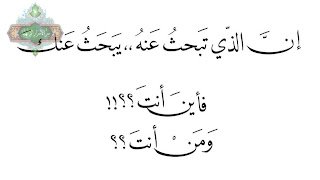 إنَّ الذّي تَبحثُ عَنهُ ،، يَبحَثُ عَنكَ
فأينَ أنتَ ؟؟!!
وَمَنْ أنتَ ؟؟